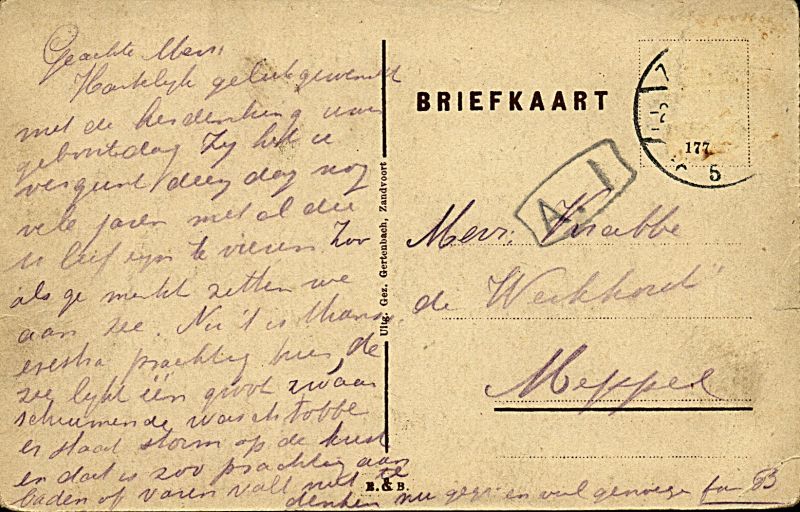 Geachte Mevr:
Hartelijk gelukgewenscht
met de herdenking uwer
geboortdag Zij het u
vergunt deez dag nog
vele jaren met al die
u lief zijn te vieren Zoo
als ge merkt zitten we
aan zee. Nu 't is thans
exstra prachtig hier, de
zee lijkt één groot zwaar
schuimende waschtobbe
er staat storm op de kust
en dat is zoo prachtig aan
baden of varen valt niet te
denken nu gegr en veel genoege fam B
Uitg. Gez. Gertenbach, Zandvoort
E. & B.
BRIEFKAART
177
5
A. 1
Mevr: Knabbe
de Weekhorst"
Meppel